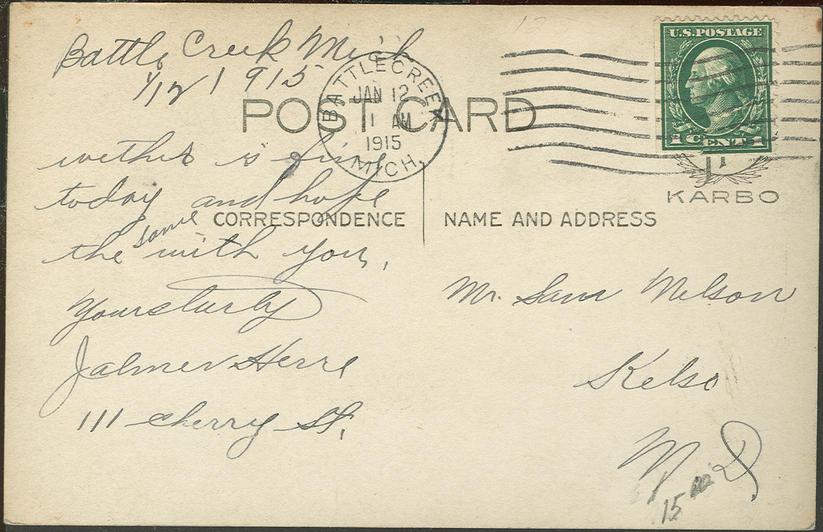 Battle Creek Mich
1/12 1915
BATTLECREEK
JAN 12
1 AM
1915
MICH.
U.S. POSTAGE
1 CENT 1
POST CARD
KARBO
CORRESPONDENCE
NAME AND ADDRESS
wether is fine
today and hope
the same with you,
Yours
111 Cherry St.
Mr. Sam Nelson
Kelso
N. D.
15